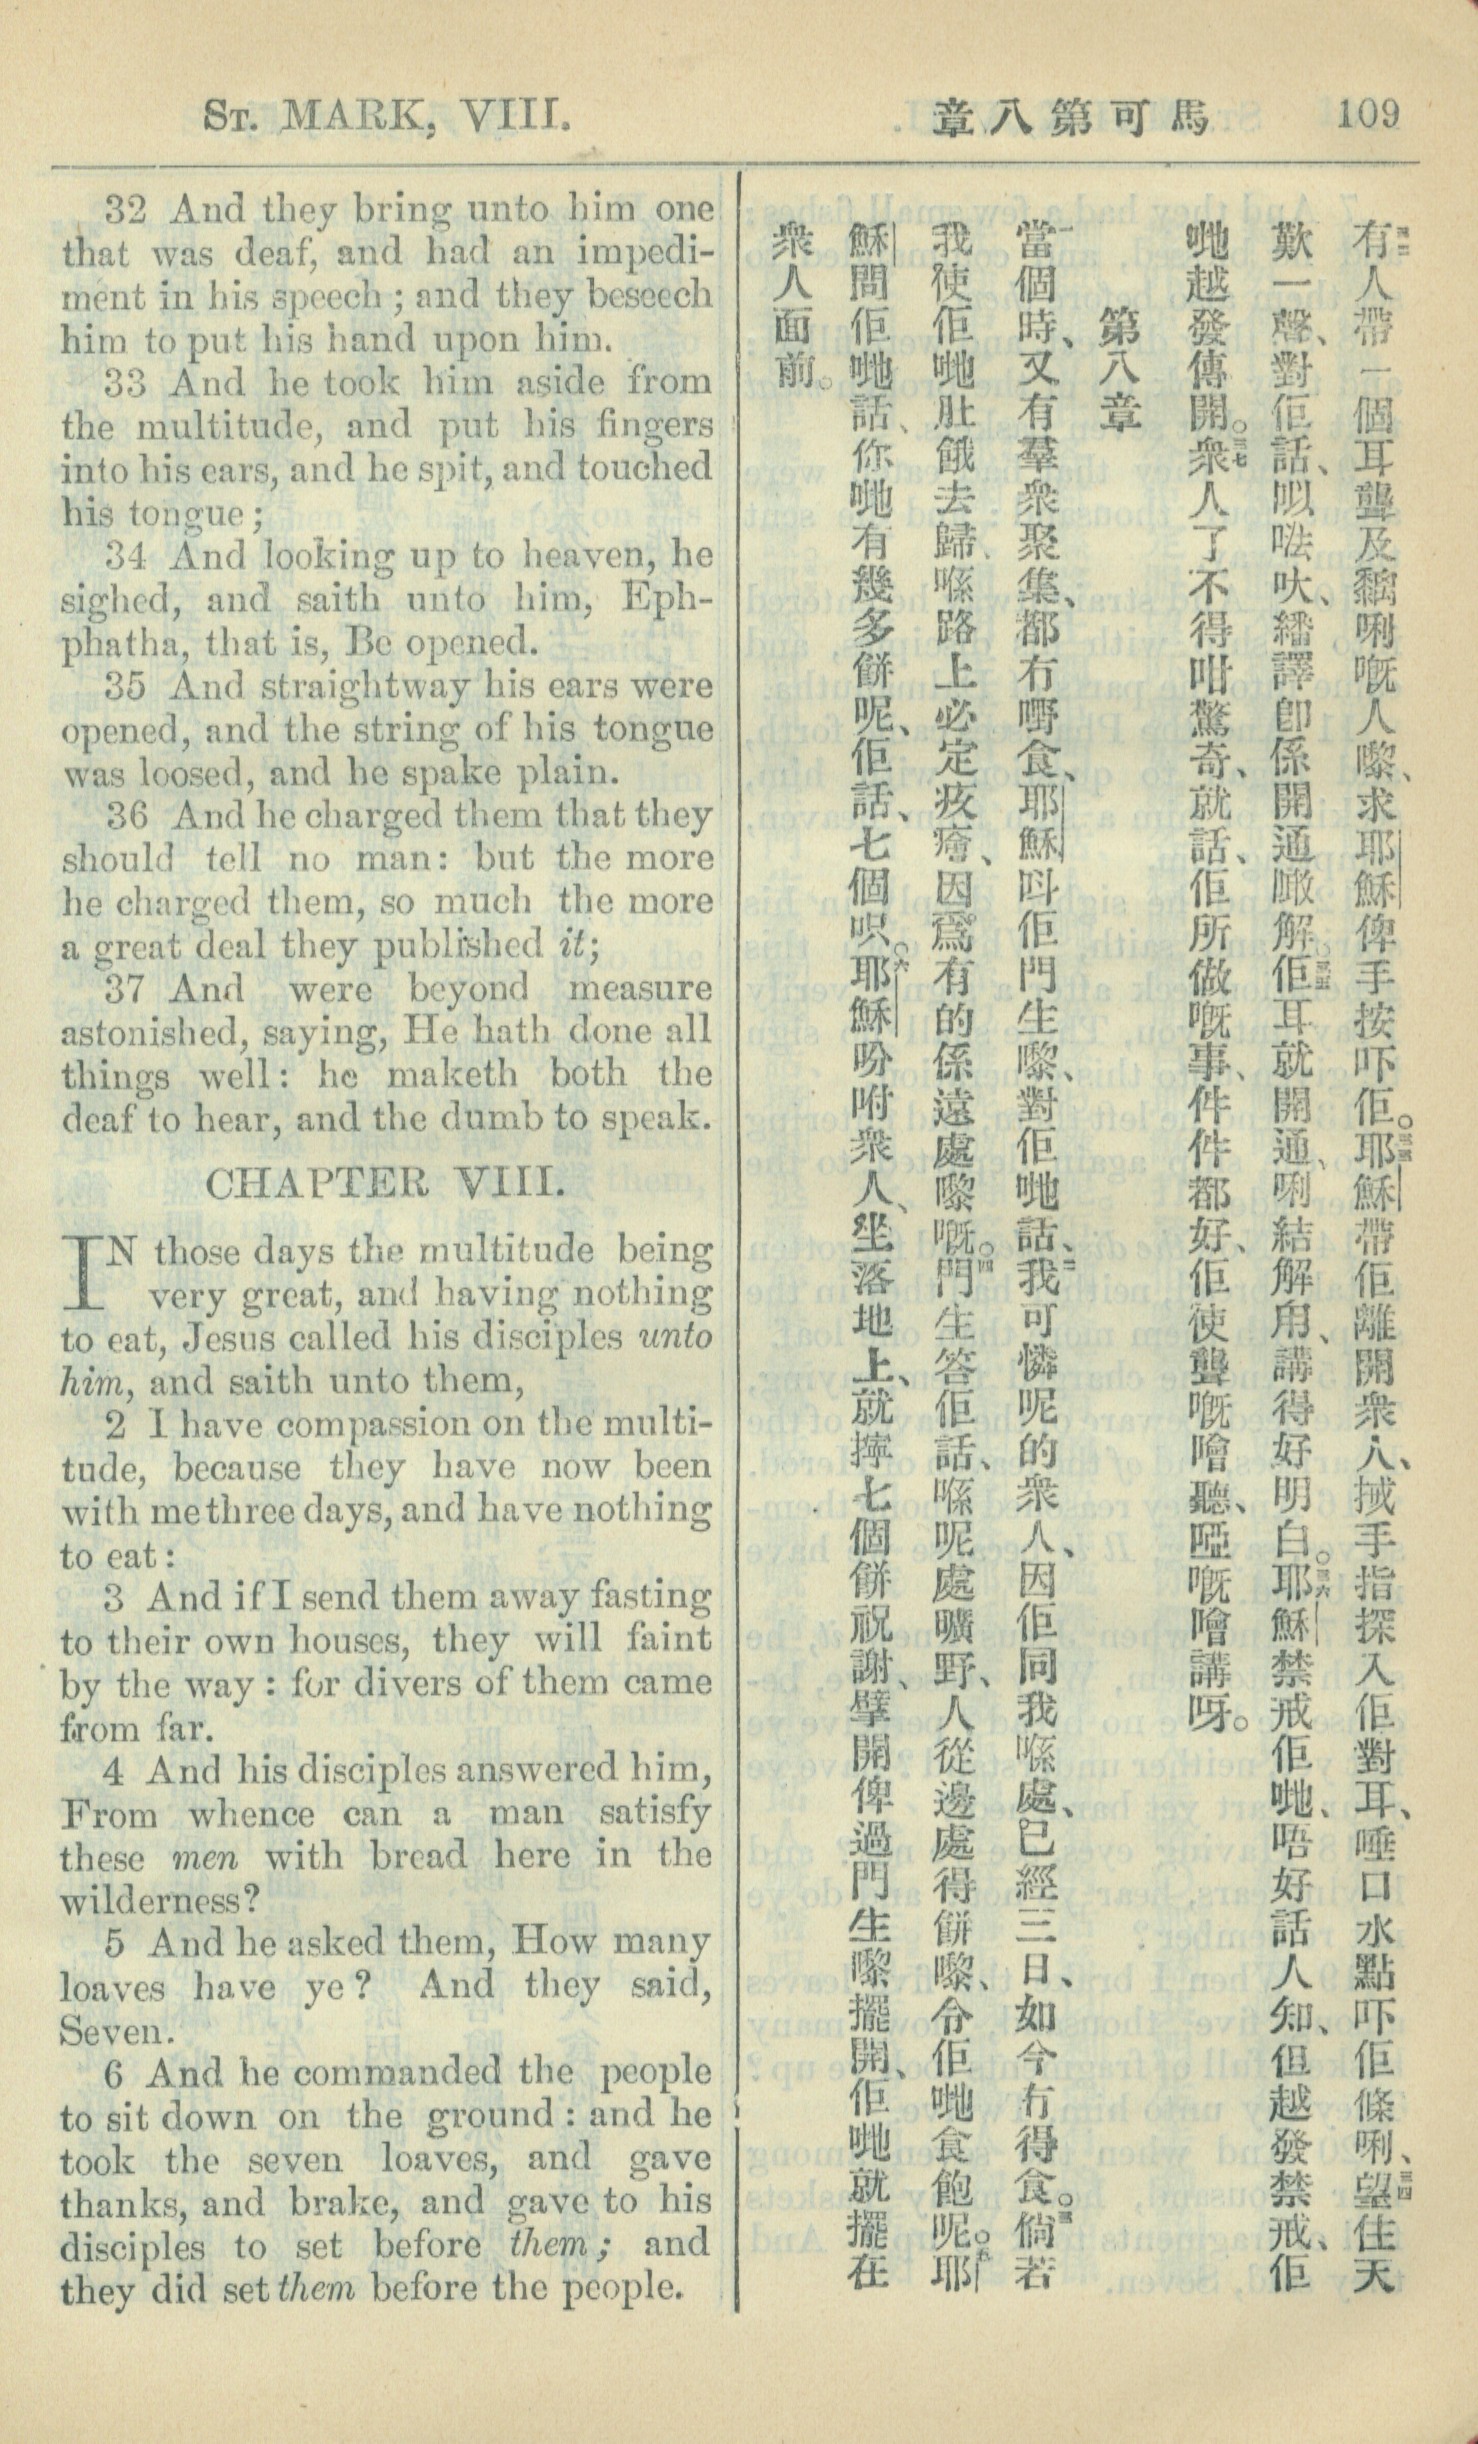 St. MARK, VIII.
章八第可馬
109
32 And they bring unto him one
that was deaf, and had an impedi-
ment in his speech ; and they beseech
him to put his hand upon him.
33 And he took him aside from
the multitude, and put his fingers
into his ears, and he spit, and touched
his tongue ;
34 And looking up to heaven, he
sighed, and saith unto him, Eph-
phatha, that is, Be opened.
35 And straightway his ears were
opened, and the string of his tongue
was loosed, and he spake plain.
36 And he charged them that they
should tell no man: but the more
he charged them, so much the more
a great deal they published it;
37 And were beyond measure
astonished, saying, He hath done all
things well: he maketh both the
deaf to hear, and the dumb to speak.
CHAPTER VIII.
IN those days the multitude being
very great, and having nothing
to eat, Jesus called his disciples unto
him, and saith unto them,
2 I have compassion on the multi-
tude, because they have now been
with me three days, and have nothing
to eat :
3 And if I send them away fasting
to their own houses, they will faint
by the way : for divers of them came
from far.
4 And his disciples answered him,
From whence can a man satisfy
these men with bread here in the
wilderness?
5 And he asked them, How many
loaves have ye? And they said,
Seven.
6 And he commanded the people
to sit down on the ground : and he
took the seven loaves, and gave
thanks, and brake, and gave to his
disciples to set before them ; and
they did set them before the people.
三二有人帶一個耳聾及黐脷嘅人嚟、求耶穌俾手按吓佢。三三耶穌帶佢離開衆人、搣手指探入佢對耳、唾口水點吓佢條脷、三四望住天
歎一聲、對佢話、㕥㖠呔、繙譯卽係開通噉解。三五佢耳就開通、脷結解甩、講得好明白。三六耶穌禁戒佢哋、唔好話人知、但越發禁戒、佢
哋越發傳開。三七衆人了不得咁驚奇、就話、佢所做嘅事、件件都好、佢使聾嘅噲聽、啞嘅噲講呀。
第八章
一當個時、又有羣衆聚集、都冇嘢食、耶穌呌佢門生嚟、對佢哋話、二我可憐呢的衆人、因佢同我喺處、已經三日、如今冇得食。三倘若
我使佢哋肚餓去歸、喺路上必定疲癐、因爲有的係遠處嚟嘅。四門生答佢話、喺呢處曠野、人從邊處得餅嚟、令佢哋食飽呢。五耶
穌問佢哋話、你哋有幾多餅呢、佢話、七個呮。六耶穌吩咐衆人、坐落地上、就擰七個餅祝謝、擘開俾過門生嚟擺開、佢哋就擺在
衆人面前。